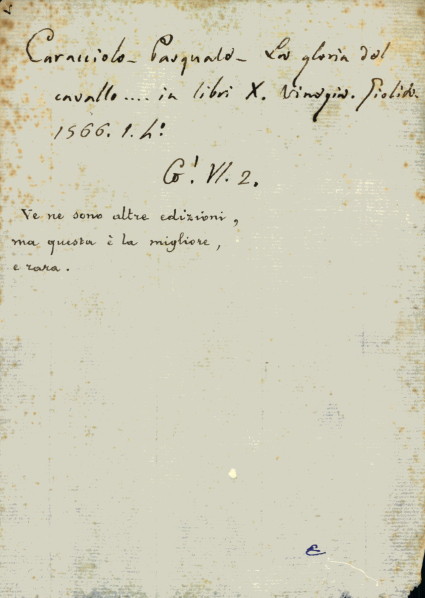 Caracciolo - Pasquale - La gloria del
cavallo .... in libri X. Vinegia. Giolito.
1566. 1. 4º.
VI. 2.
Ve ne sono altre edizioni,
ma questa è la migliore,
e rara.